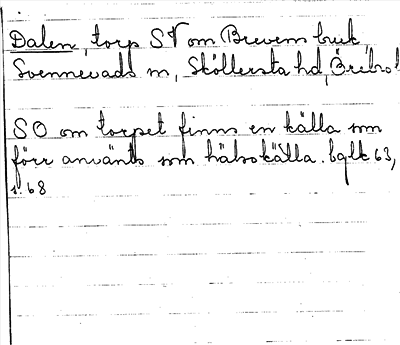 Dalen, torp SV om Brevens bruk,
Svennevads sn, Sköllersta hd, Örebro l
SO om torpet finns en källa som
förr använts som hälsokälla. bglk 63,
s. 68